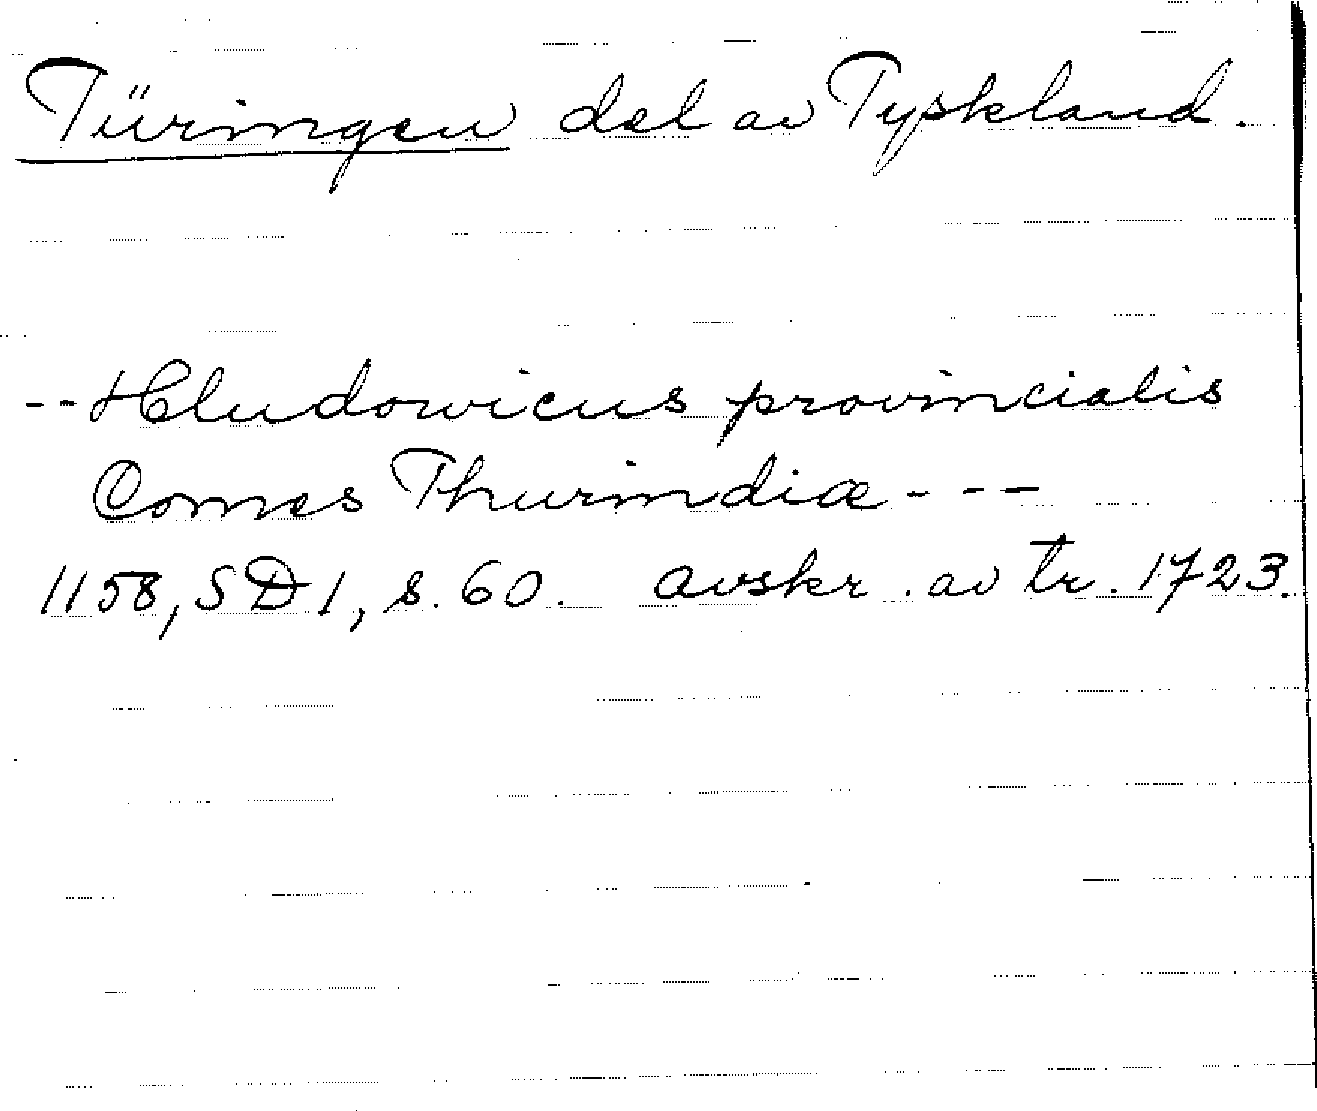 Türingen del av Tyskland.
-- Hludowicus provincialis
Comes Thurindiæ ---
1158, SD 1, s. 60. avskr. av tr. 1723.